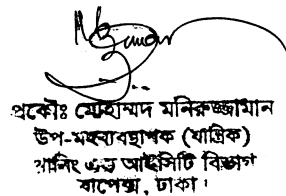 প্রকৌঃ মোহাম্মদ মনিরুজ্জামান
উপ-মহাব্যবস্থাপক (যান্ত্রিক)
প্লানিং এন্ড আইসিটি বিভাগ
বাপেক্স, ঢাকা।